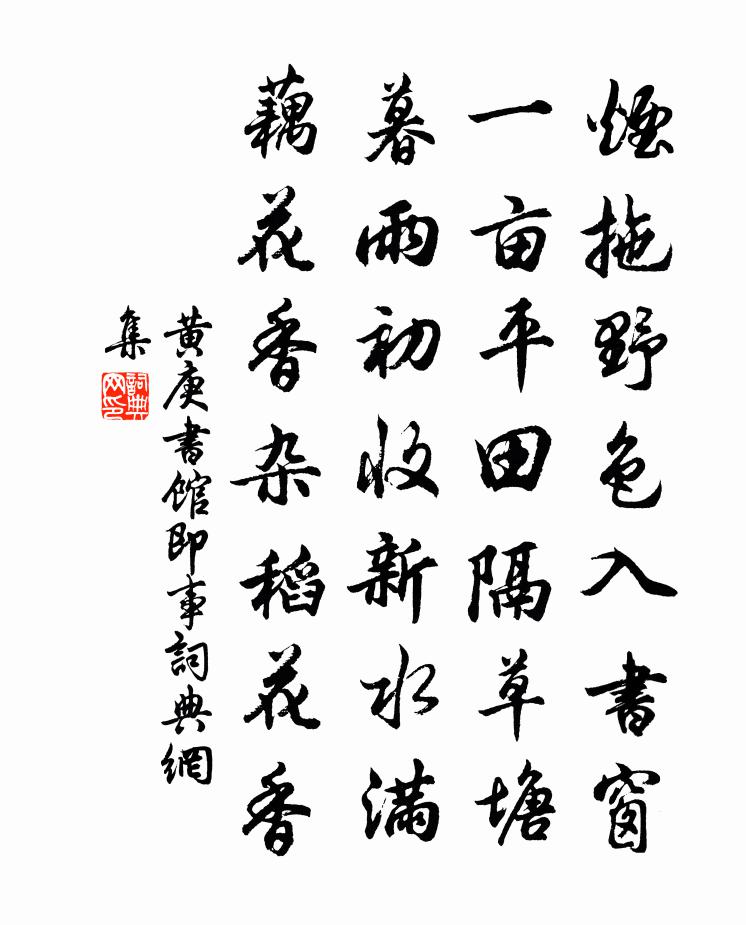 煙拖野色入書窗
一亩平田隔草塘
暮雨初收新水满
藕花香杂稻花香
黄庚書馆即事詞典網
集
詞典
网印